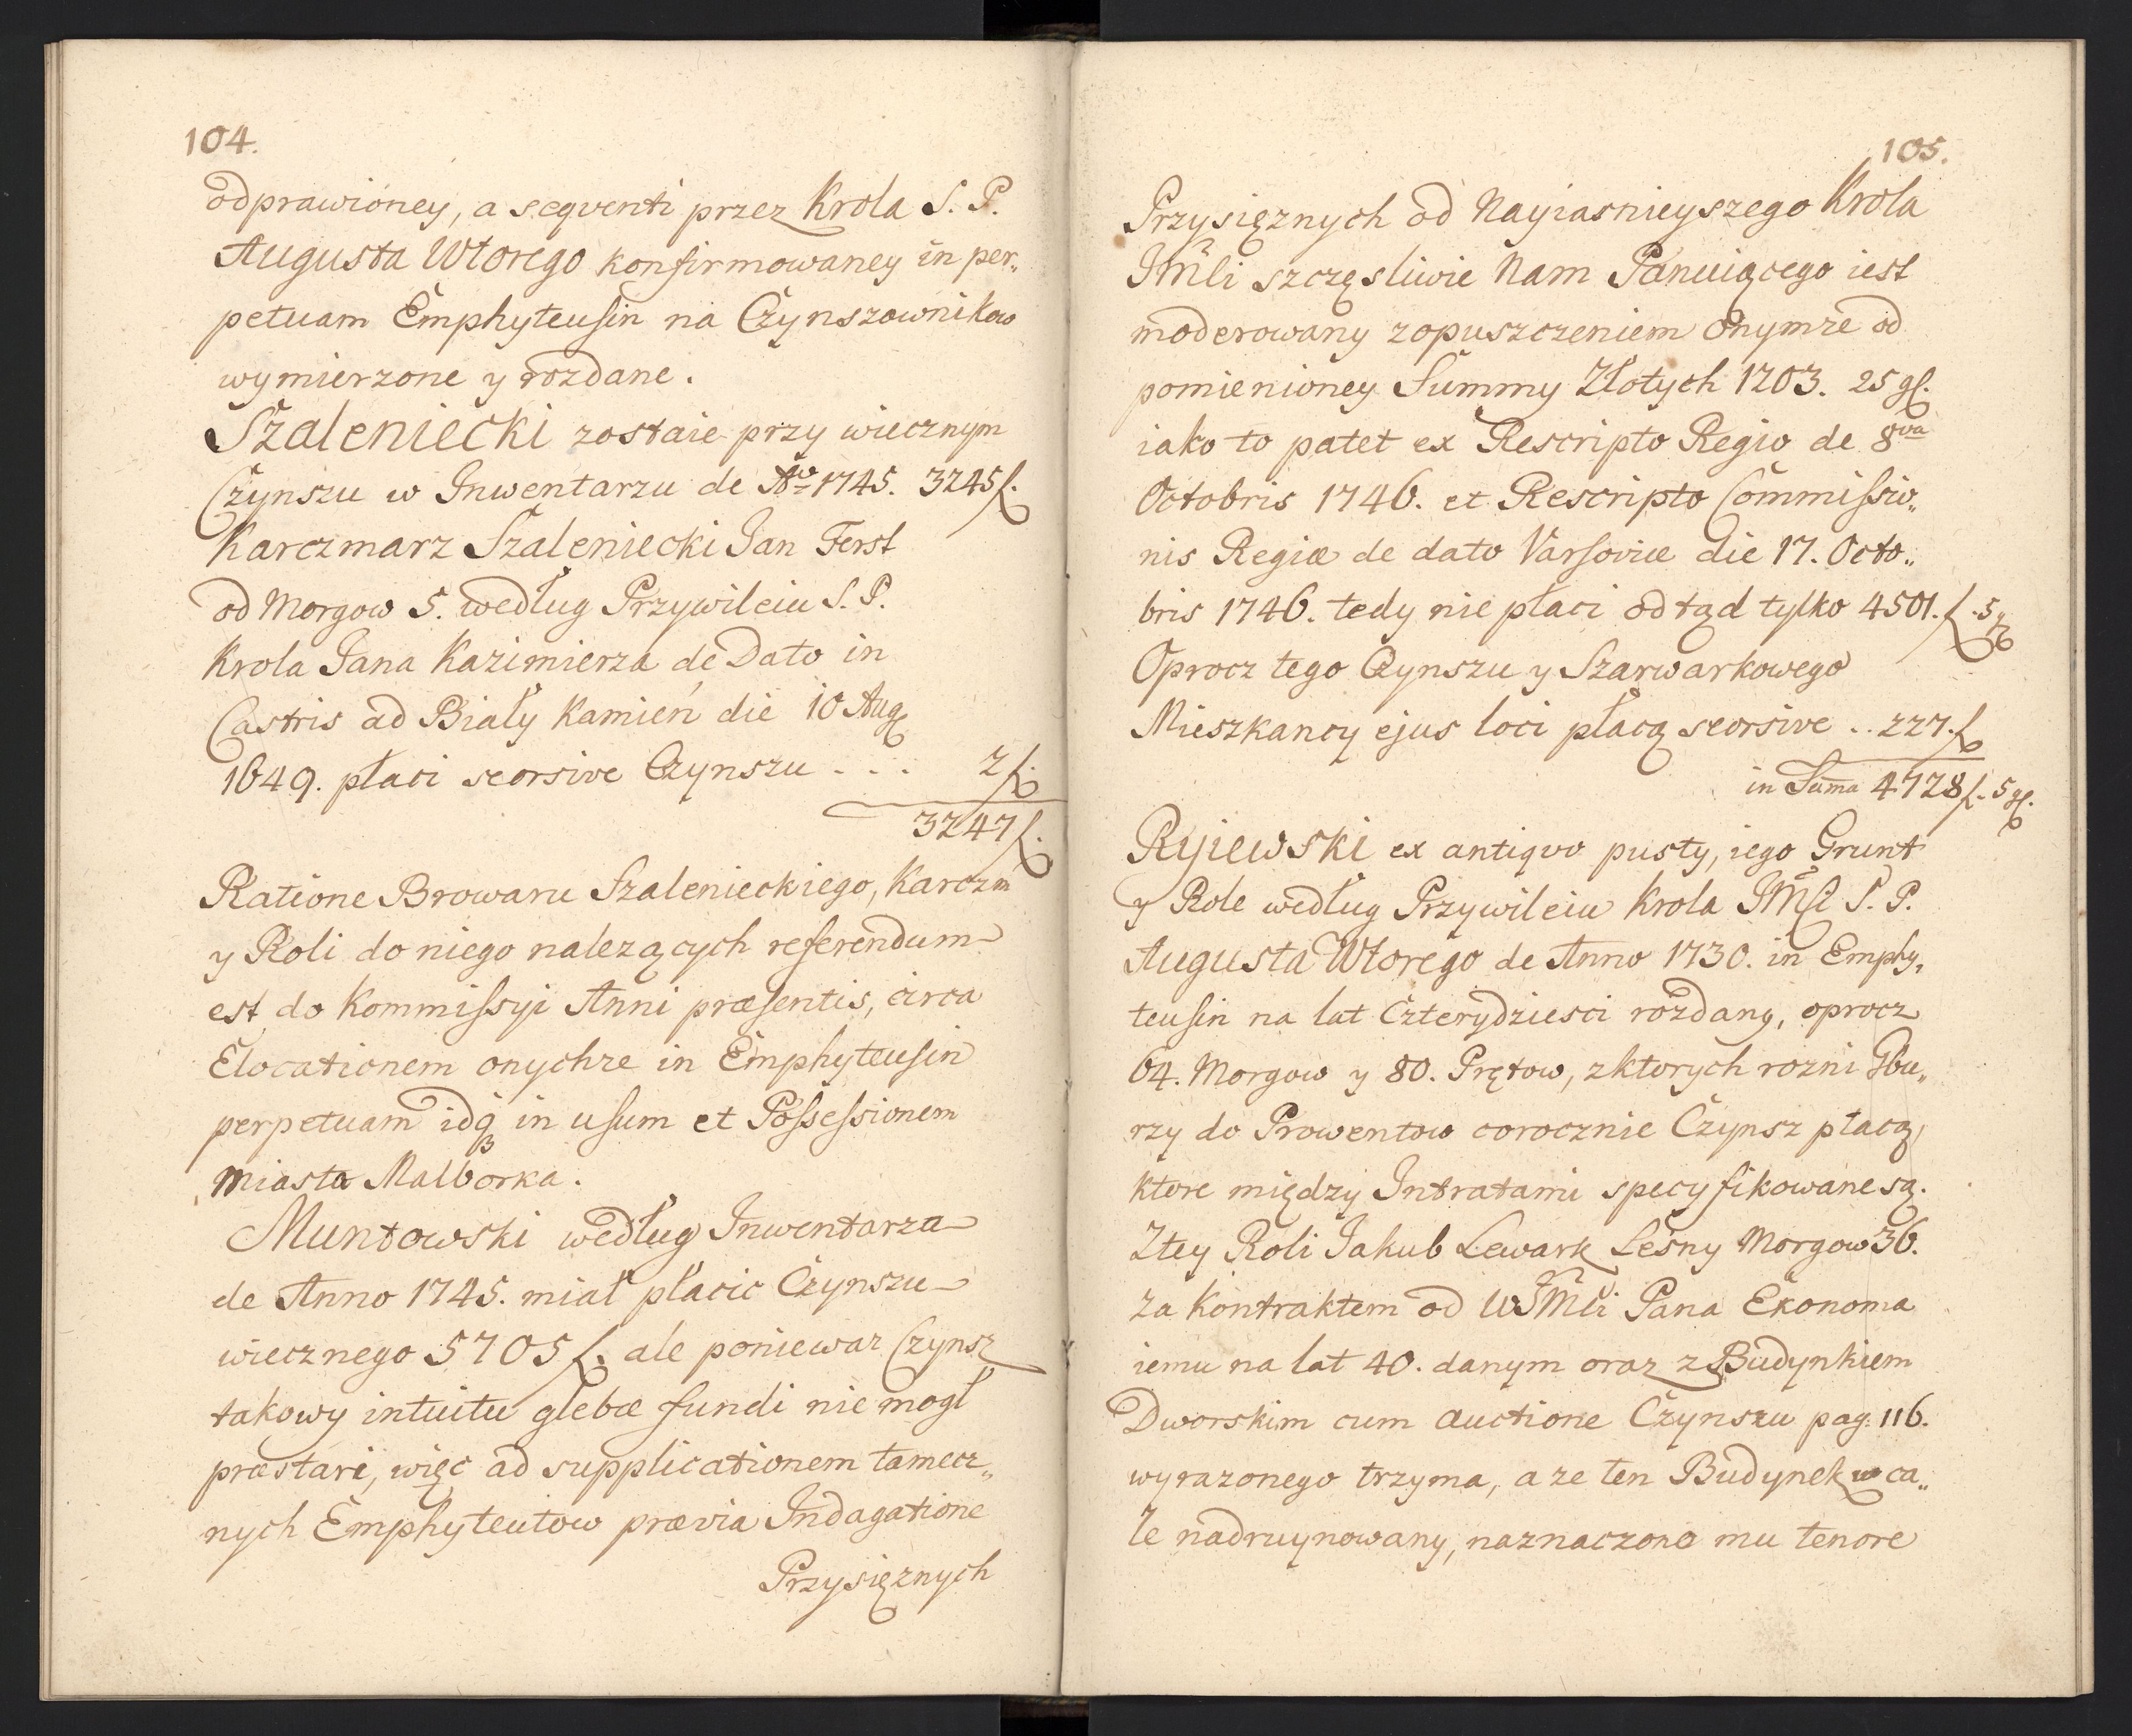 104.
odprawioney, a seqventi przez Krola S. P.
Augusta Wtorego konfirmowaney in per„
petuam Emphyteusin na Czynszownikow
wymierzone y rozdane.
Szaleniecki zostaie przy wiecznym
Czynszu w Inwentarzu de Aō 1745. 3245 f.
Karczmarz Szaleniecki Jan Ferst
od Morgow 5. według Przywileiu S. P.
Krola Jana Kazimierza de Dato in
Castris ad Biały Kamień die 10 Aug
1649. płaci seorsive Czynszu . . . 2 f.
3247 f.
Ratione Browaru Szalenieckiego, Karczm
y Roli do niego nalezących referendum
est do Kommissyi Anni præsentis, circa
Elocationem onychze in Emphyteusin
perpetuam idq in usum et Possessionem
Miasta Malborka.
Muntowski według Inwentarza
de Anno 1745. miał płacic Czynszu
wiecznego 5705 f. ale poniewaz Czynsz
takowy intuitu glebæ fundi nie mogł
præstari, więc ad supplicationem tamecz„
nych Emphyteutow prævia Indagatione
Przysięznych
105.
Przysięznych od Nayiasnieyszego Krola
JMCi szczęsliwie Nam Panuiącego iest
moderowany z opuszczeniem onymze od
pomienioney Summy Złotych 1203. 25 gl.
iako to patet ex Rescripto Regio de 8va
Octobris 1746. et Rescripto Commissio„
nis Regiæ de dato Varsoviæ die 17. Octo„
bris 1746. tedy nie płaci odtąd tylko 4501. f. 5 g
Oprocz tego Czynszu y Szarwarkowego
Mieszkancy ejus loci płacą seorsive .. 227. f
in Sum̄a 4728 f. 5 gl.
Ryiewski ex antiqvo pusty, iego Grunt
y Role według Przywileiu Krola JMSci S. P.
Augusta Wtorego de Anno 1730. in Emphy„
teusin na lat Czterydziesci rozdany, oprocz
64. Morgow y 80. Prętow, z ktorych rozni Gbu„
rzy do Prowentow corocznie Czynsz płacą,
ktore między Intratami specyfikowane są.
Z tey Roli Jakub Lewark Leśny Morgow 36.
za Kontraktem od WJMCi Pana Ekonoma
iemu na lat 40. danym oraz z Budynkiem
Dworskim cum auctione Czynszu pag: 116.
wyrazonego trzyma, a ze ten Budynek w ca„
le nadruynowany, naznaczono mu tenore